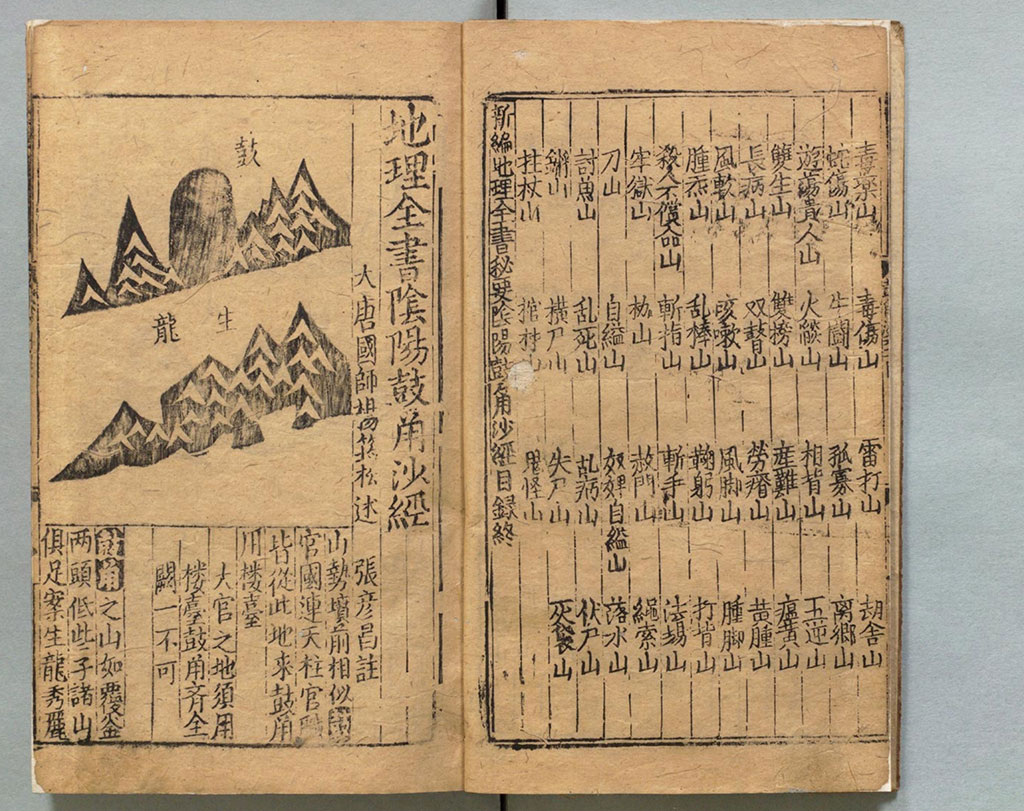 毒藥山 毒傷山 雷打山 胡舍山
蛇傷山 牛鬪山 孤寡山 离鄉山
遊蕩貴人山 火燄山 相背山 五逆山
雙生山 雙山 産難山 瘟黃山
長病山 双瞽山 勞瘠山 黃腫山
風軟山 咳嗽山 風脚山 腫脚山
腫山 乱棒山 鞠躬山 打背山
殺人不償命山 斬指山 斬手山 法場山
牢獄山 枷山 赦門山 繩索山
刀山 自縊山 奴婢自縊山 落水山
討山 乱死山 乱病山 伏尸山
山 橫尸山 失尸山 灾山
拄杖山 棺材山 鬼怪山
新編地理全書秘要陰陽鼓角沙經目録終
地理全書陰陽鼓角沙經
大唐國師楊筠松述
鼓
生龍
張彦昌註
山勢壙前相似
官國連天柱官
皆從此地来鼓角
用楼臺
大官之地須用
楼臺鼓角齊全
闕一不可
鼓角之山如覆釜
两頭低些子諸山
俱足案生龍秀麗